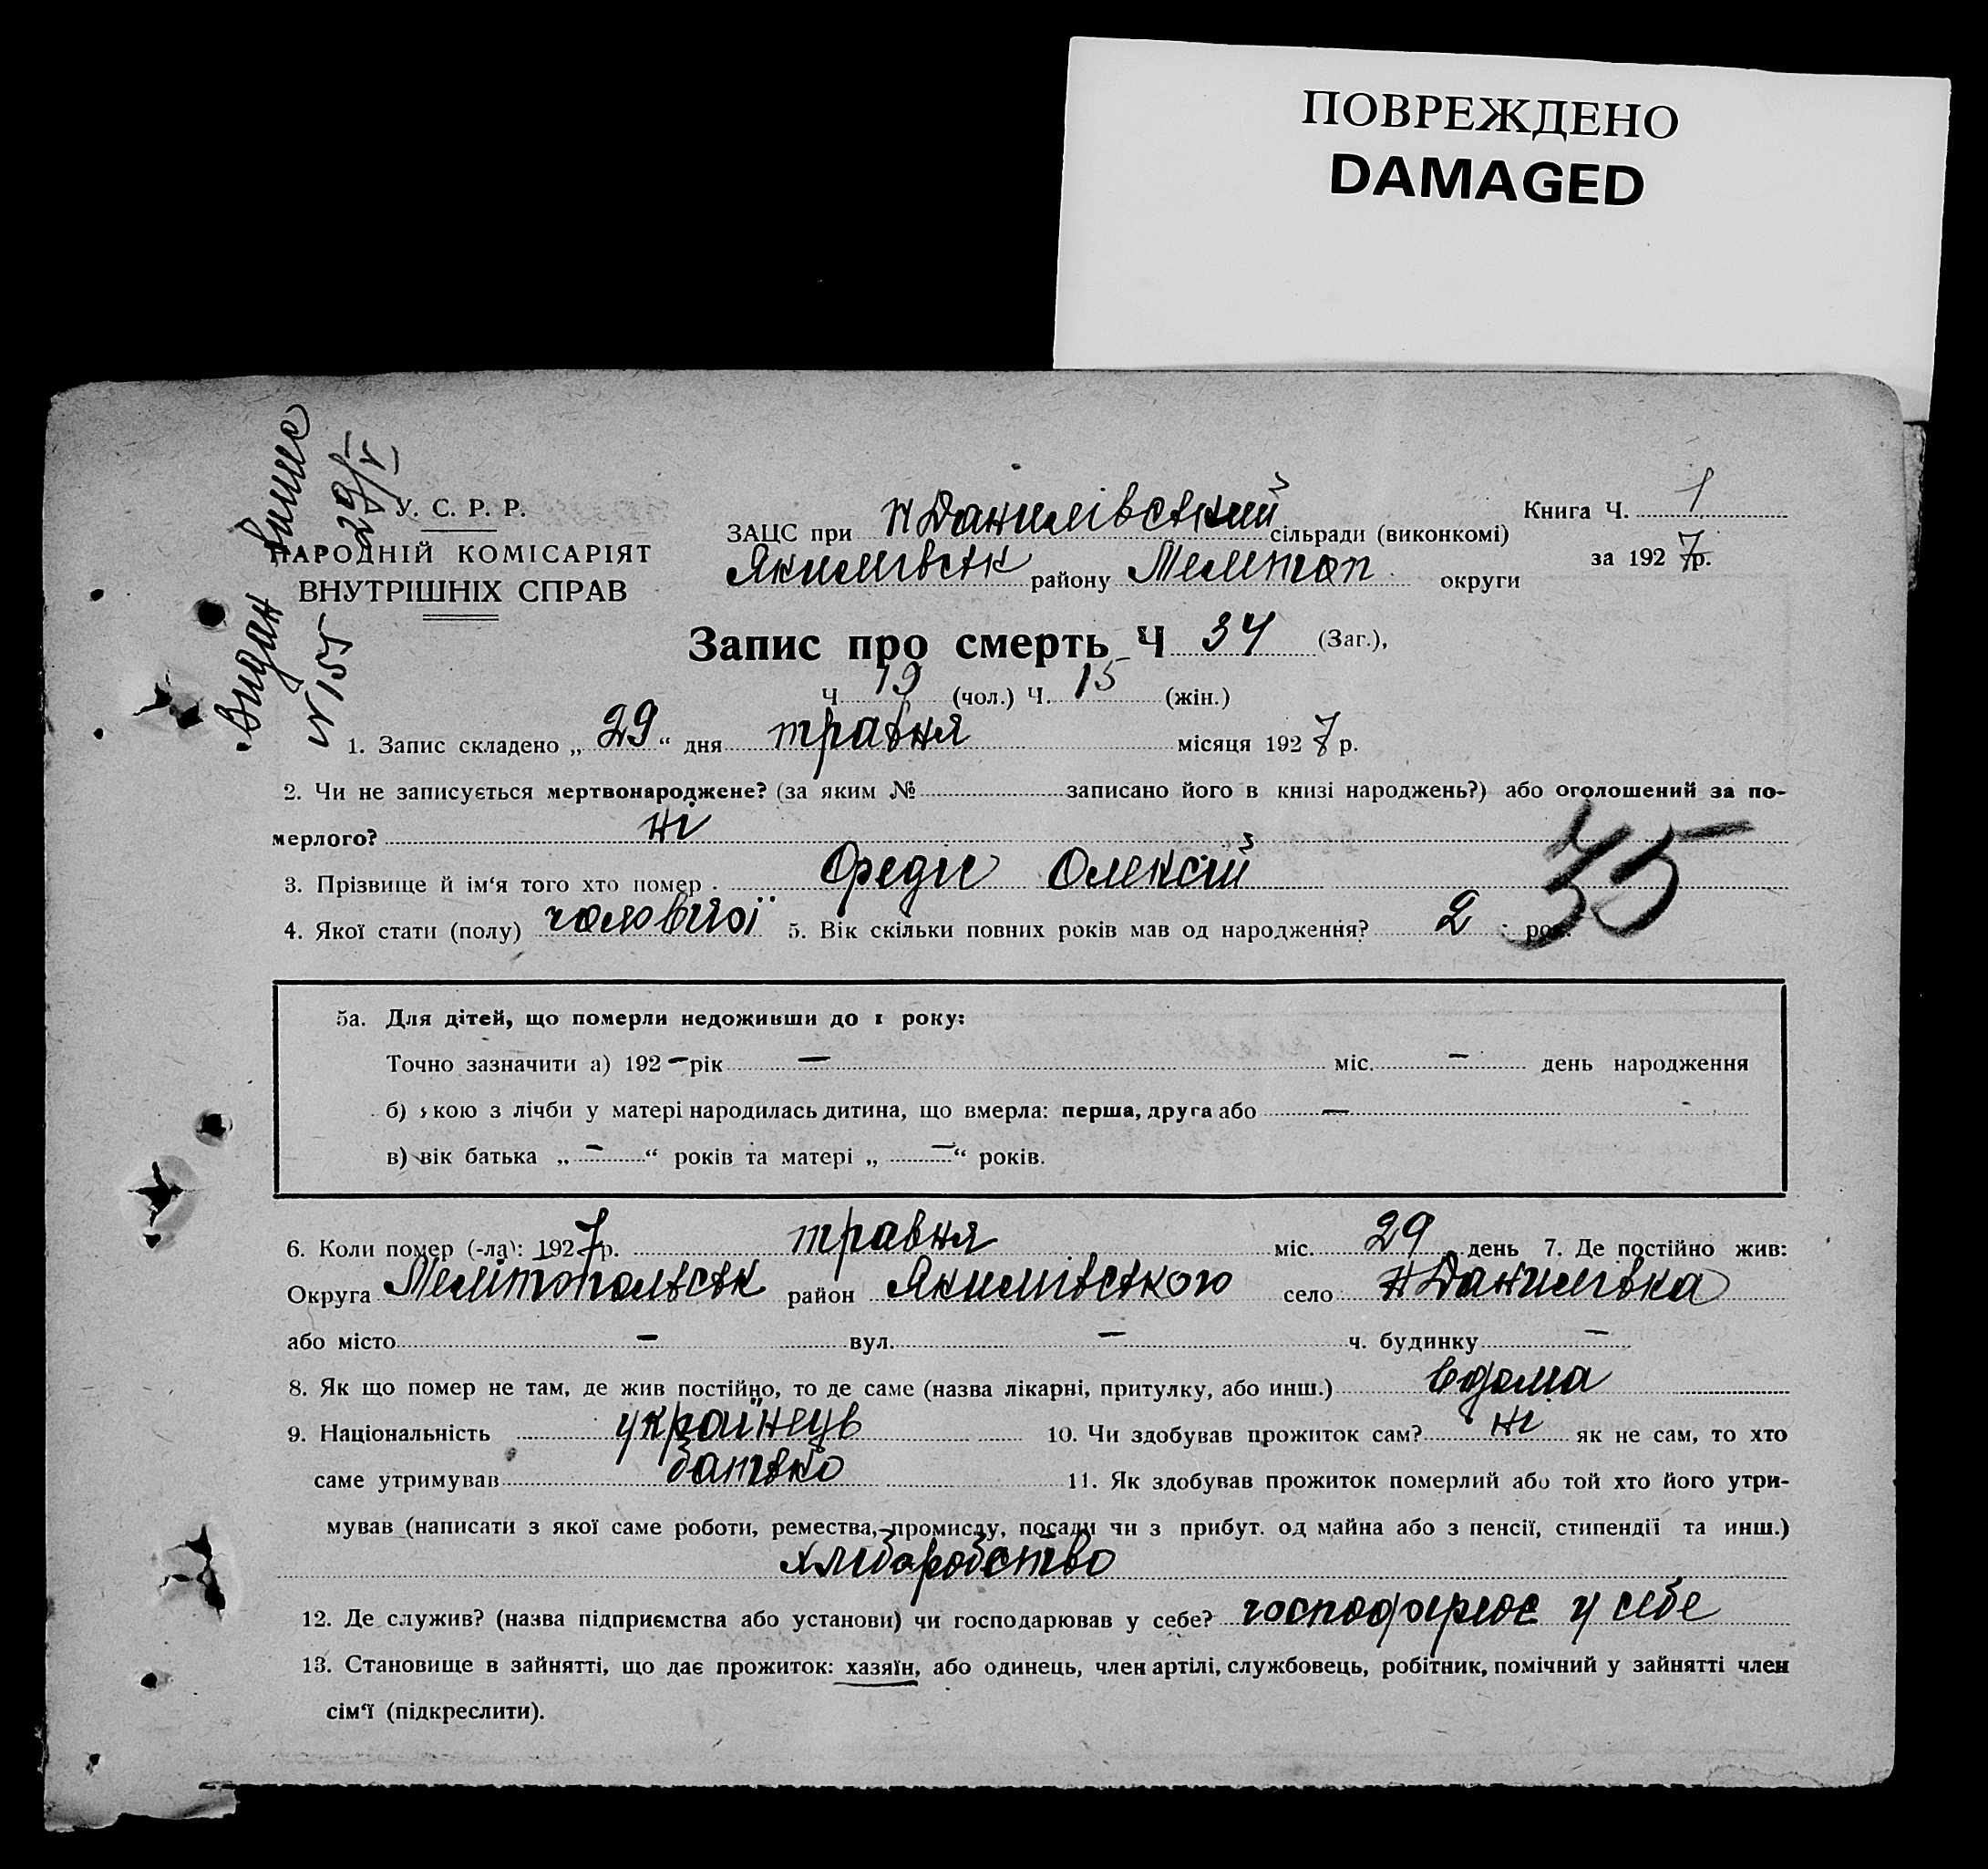 ПОВРЕЖДЕНО
DAMAGED
Видан
N 155 29/V
У. С. Р. Р.
НАРОДНІЙ КОМІСАРІЯТ
ВНУТРІШНІХ СПРАВ
ЗАЦС при Н Данилівский сільради (виконкомі)
Якимівськ району Мелитоп. округи
Книга Ч. 1
за 1927 р.
Запис про смерть Ч 34 (Заг.),
Ч 19 (чол.) Ч. 15 (жін.)
1. Запис складено „ 29 “ дня травня місяця 1927 р.
2. Чи не записується мертвонароджене? (за яким № записано його в книзі народжень?) або оголошений за по-
мерлого? ні
3. Прізвище й ім‘я того хто помер . Олексій
35
4. Якої стати (полу) чоловічої 5. Вік скільки повних років мав од народження? 2 рок.
5а. Для дітей, що померли недоживши до 1 року:
Точно зазначити а) 192 – рік – міс. – день народження
б) якою з лічби у матері народилась дитина, що вмерла: перша, друга або –
в) вік батька „ – “ років та матері „ – “ років.
6. Коли помер (-ла): 1927 р. травня міс. 29 день 7. Де постійно жив:
Округа Мелітопольськ район Якимівского село Н Данилівка
або місто – вул. – ч. будинку –
8. Як що помер не там, де жив постійно, то де саме (назва лікарні, притулку, або инш.) вдома
9. Національність українець 10. Чи здобував прожиток сам? ні як не сам, то хто
саме утримував батько 11. Як здобував прожиток померлий або той хто його утри-
мував (написати з якої саме роботи, ремества, промислу, посади чи з прибут. од майна або з пенсії, стипендії та инш.)
хліборобство
12. Де служив? (назва підприємства або установи) чи господарював у себе? господарює у себе
13. Становище в зайнятті, що дає прожиток: хазяїн, або одинець, член артілі, службовець, робітник, помічний у зайнятті член
сім‘ї (підкреслити).